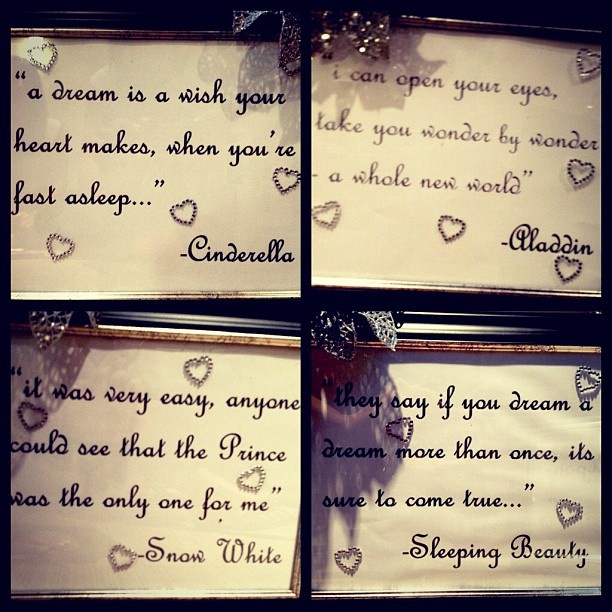 “a dream is a wish your
heart makes, when you're
fast asleep...”
-Cinderella
“i can open your eyes,
take you wonder by wonder
- a whole new world”
-Aladdin
“it was very easy, anyone
could see that the Prince
was the only one for me”
-Snow White
“they say if you dream a
dream more than once, its
sure to come true...”
-Sleeping Beauty